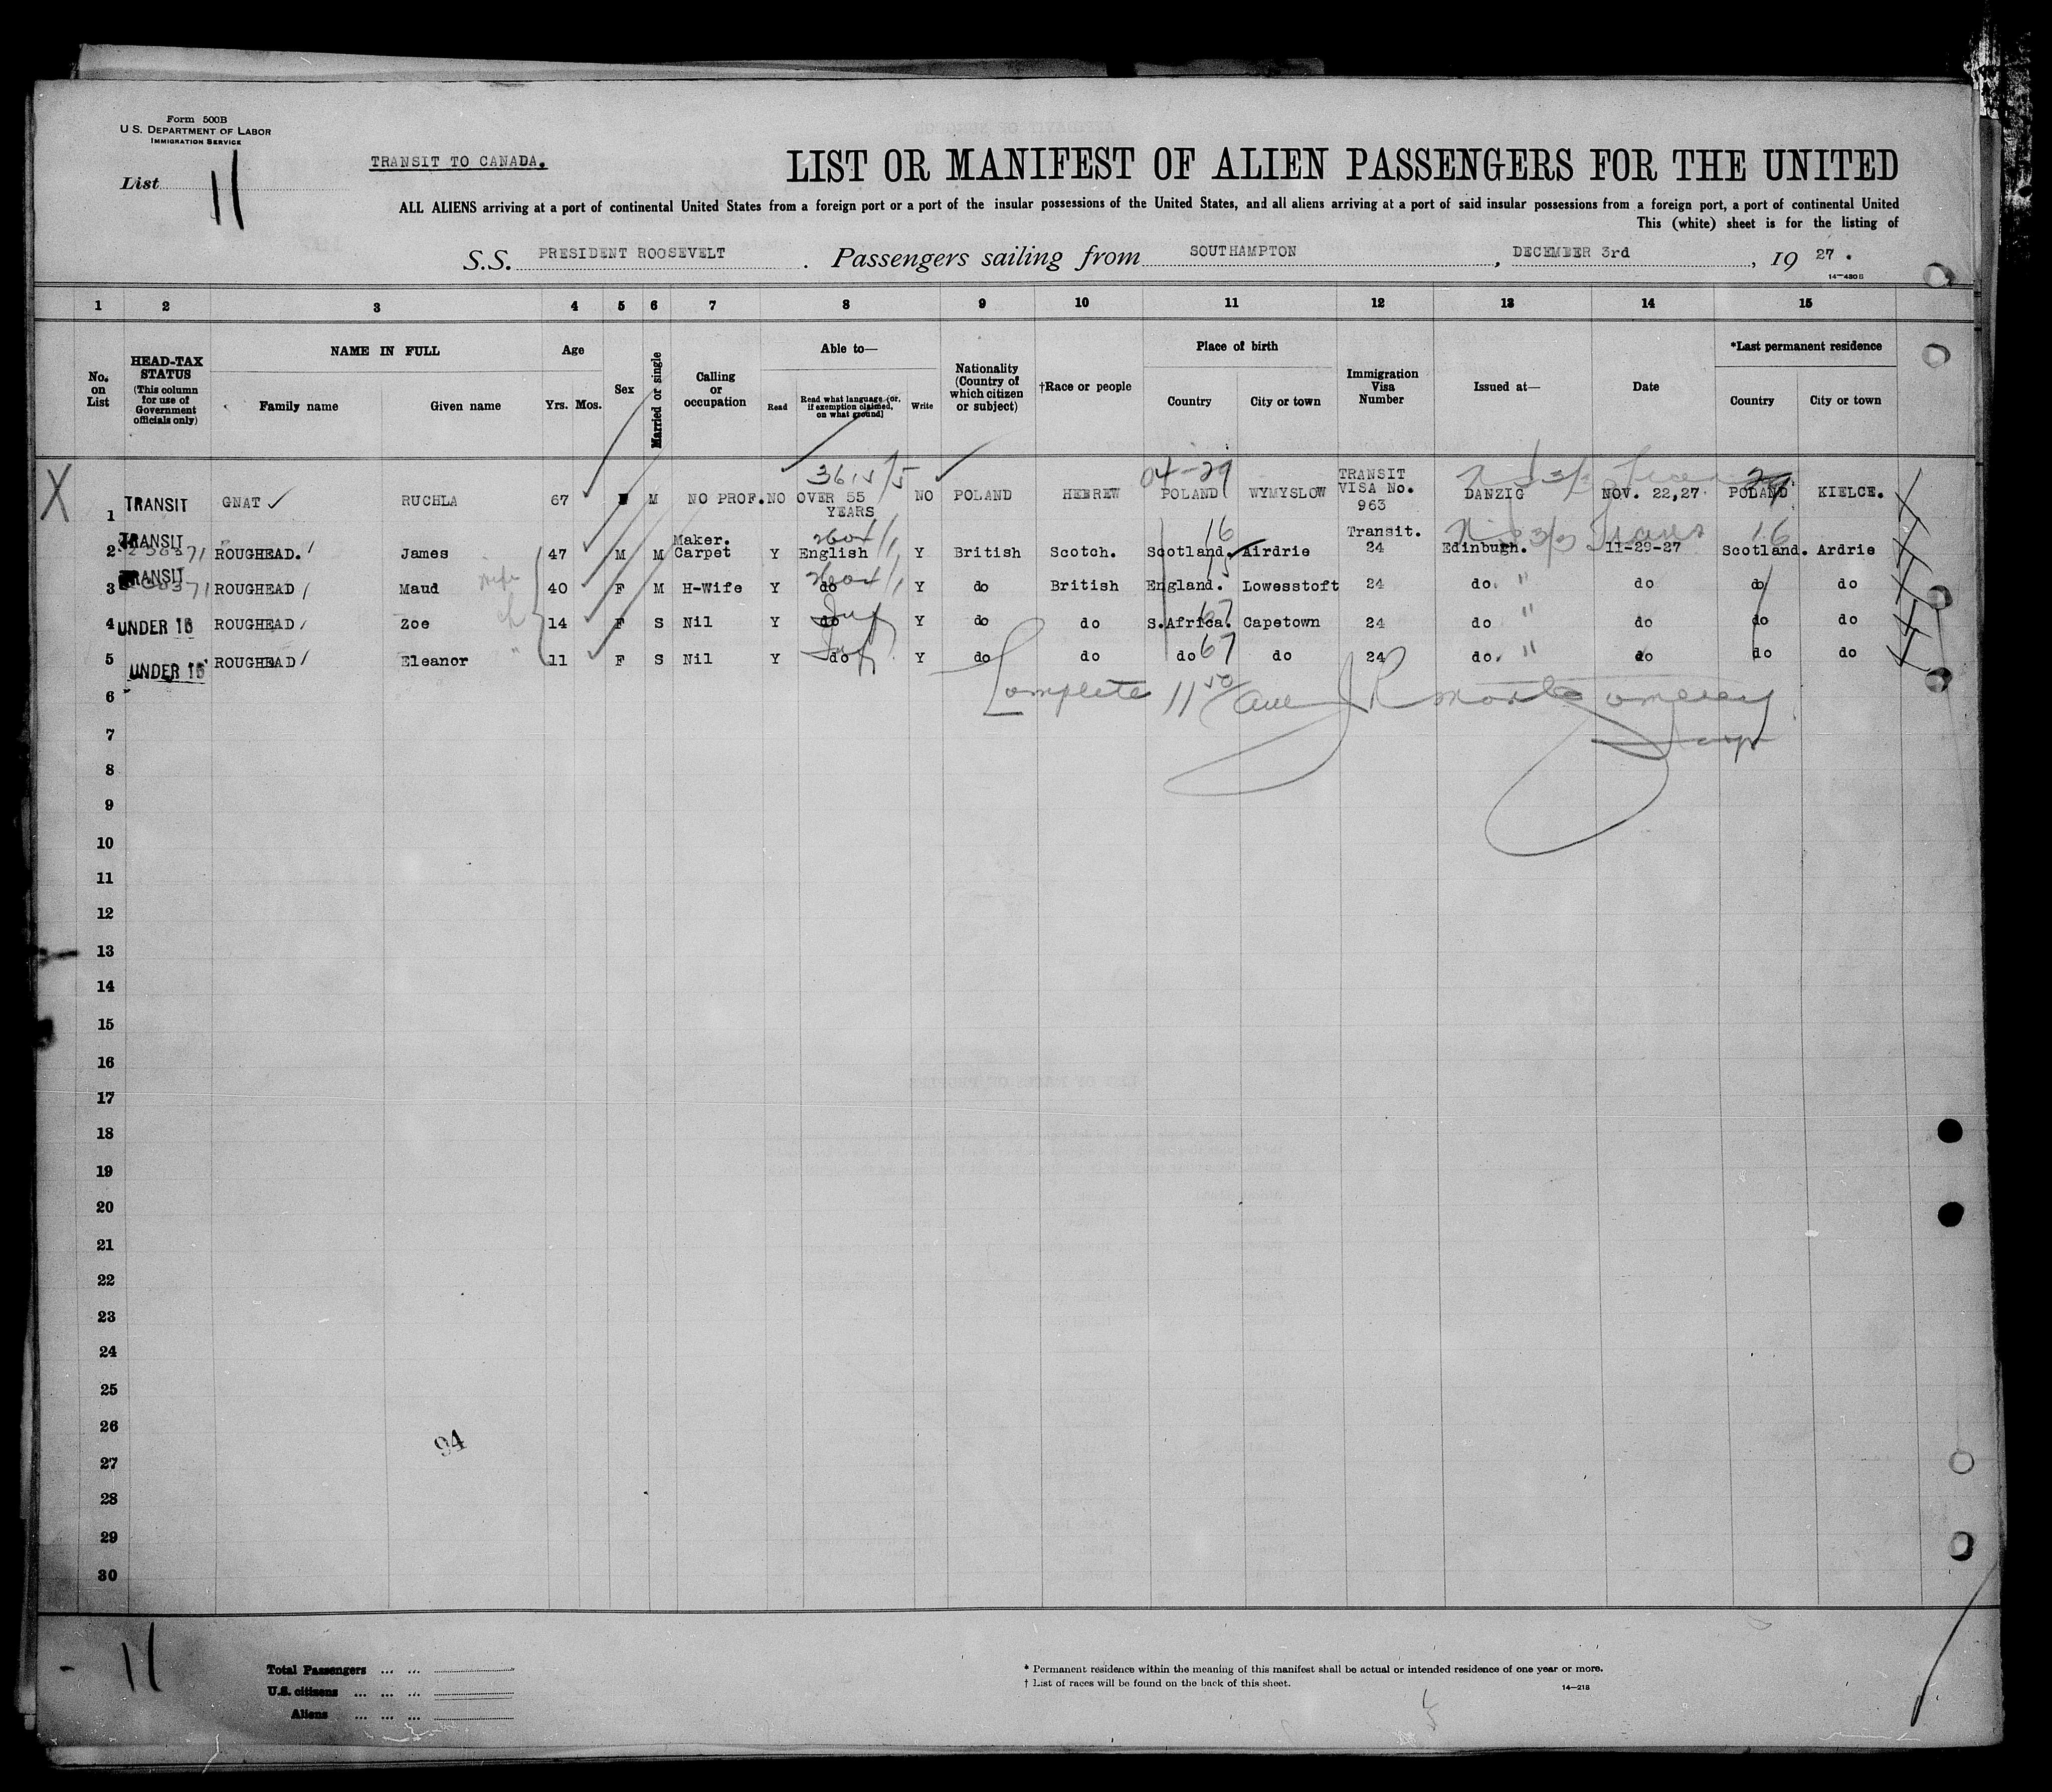 Form 500B
U. S. DEPARTMENT OF LABOR
IMMIGRATION SERVICE
TRANSIT TO CANADA.
List 11
LIST OR MANIFEST OF ALIEN PASSENGERS FOR THE UNITED
ALL ALIENS arriving at a port of continental United States from a foreign port or a port of the insular possessions of the United States, and all aliens arriving at a port of said insular possessions from a foreign port, a port of continental United
This (white) sheet is for the listing of
S.S. PRESIDENT ROOSEVELT. Passengers sailing from SOUTHAMPTON, DECEMBER 3rd, 19 27.
14—480 B
1 2 3 4 5 6 7 8 9 10 11 12 13 14 15
No. on List
HEAD-TAX STATUS (This column for use of Government officials only)
NAME IN FULL
Family name Given name
Age
Yrs. Mos.
Sex
Married or single
Calling or occupation
Able to—
Read
Read what language (or, if exemption claimed, on what ground)
Write
Nationality (Country of which citizen or subject)
†Race or people
Place of birth
Country City or town
Immigration Visa Number
Issued at—
Date
*Last permanent residence
Country City or town
X 3615/5 04-29 29
1 TRANSIT GNAT RUCHLA 67 M NO PROF. NO OVER 55 YEARS NO POLAND HEBREW POLAND WYMYSLOW TRANSIT VISA No. 963 DANZIG NOV. 22,27 POLAND KIELCE.
16 Trans 16
2 TRANSIT ROUGHEAD. James 47 M M Maker. Carpet Y English Y British Scotch. Scotland. Airdrie Transit. 24 Edinbugh. 11-29-27 Scotland. Ardrie
3 TRANSIT ROUGHEAD Maud wife 40 F M H-Wife Y do Y do British England. 15 Lowesstoft 24 do. " do do do
4 UNDER 16 ROUGHEAD Zoe ch 14 F S Nil Y do Y do do S.Africa. 67 Capetown 24 do " do do do
5 UNDER 16 ROUGHEAD Eleanor " 11 F S Nil Y do Y do do do 67 do 24 do. " do do do
Complete 11 50 JR Montgomery
Insp
6
7
8
9
10
11
12
13
14
15
16
17
18
19
20
21
22
23
24
25
26
94
27
28
29
30
11
Total Passengers ... ...
U.S. citizens ... ... ...
Aliens ... ... ...
* Permanent residence within the meaning of this manifest shall be actual or intended residence of one year or more.
† List of races will be found on the back of this sheet.
14—218